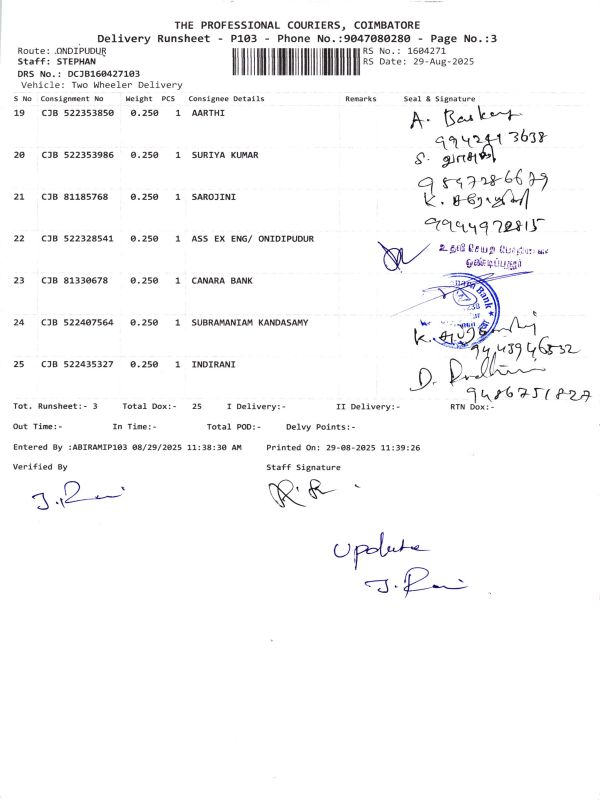 THE PROFESSIONAL COURIERS, COIMBATORE
Delivery Runsheet - P103 - Phone No.:9047080280 - Page No.:3
Route: ONDIPUDUR RS No.: 1604271
Staff: STEPHAN RS Date: 29-Aug-2025
DRS No.: DCJB160427103
Vehicle: Two Wheeler Delivery
S No Consignment No Weight PCS Consignee Details Remarks Seal & Signature
19 CJB 522353850 0.250 1 AARTHI A. Baskey
20 CJB 522353986 0.250 1 SURIYA KUMAR S.
21 CJB 81185768 0.250 1 SAROJINI K.
9944972815
22 CJB 522328541 0.250 1 ASS EX ENG/ ONIDIPUDUR
23 CJB 81330678 0.250 1 CANARA BANK
24 CJB 522407564 0.250 1 SUBRAMANIAM KANDASAMY K.
25 CJB 522435327 0.250 1 INDIRANI D.
9486751827
Tot. Runsheet:- 3 Total Dox:- 25 I Delivery:- II Delivery:- RTN Dox:-
Out Time:- In Time:- Total POD:- Delvy Points:-
Entered By :ABIRAMIP103 08/29/2025 11:38:30 AM Printed On: 29-08-2025 11:39:26
Verified By Staff Signature
J. Ravi
Update
J. Ravi